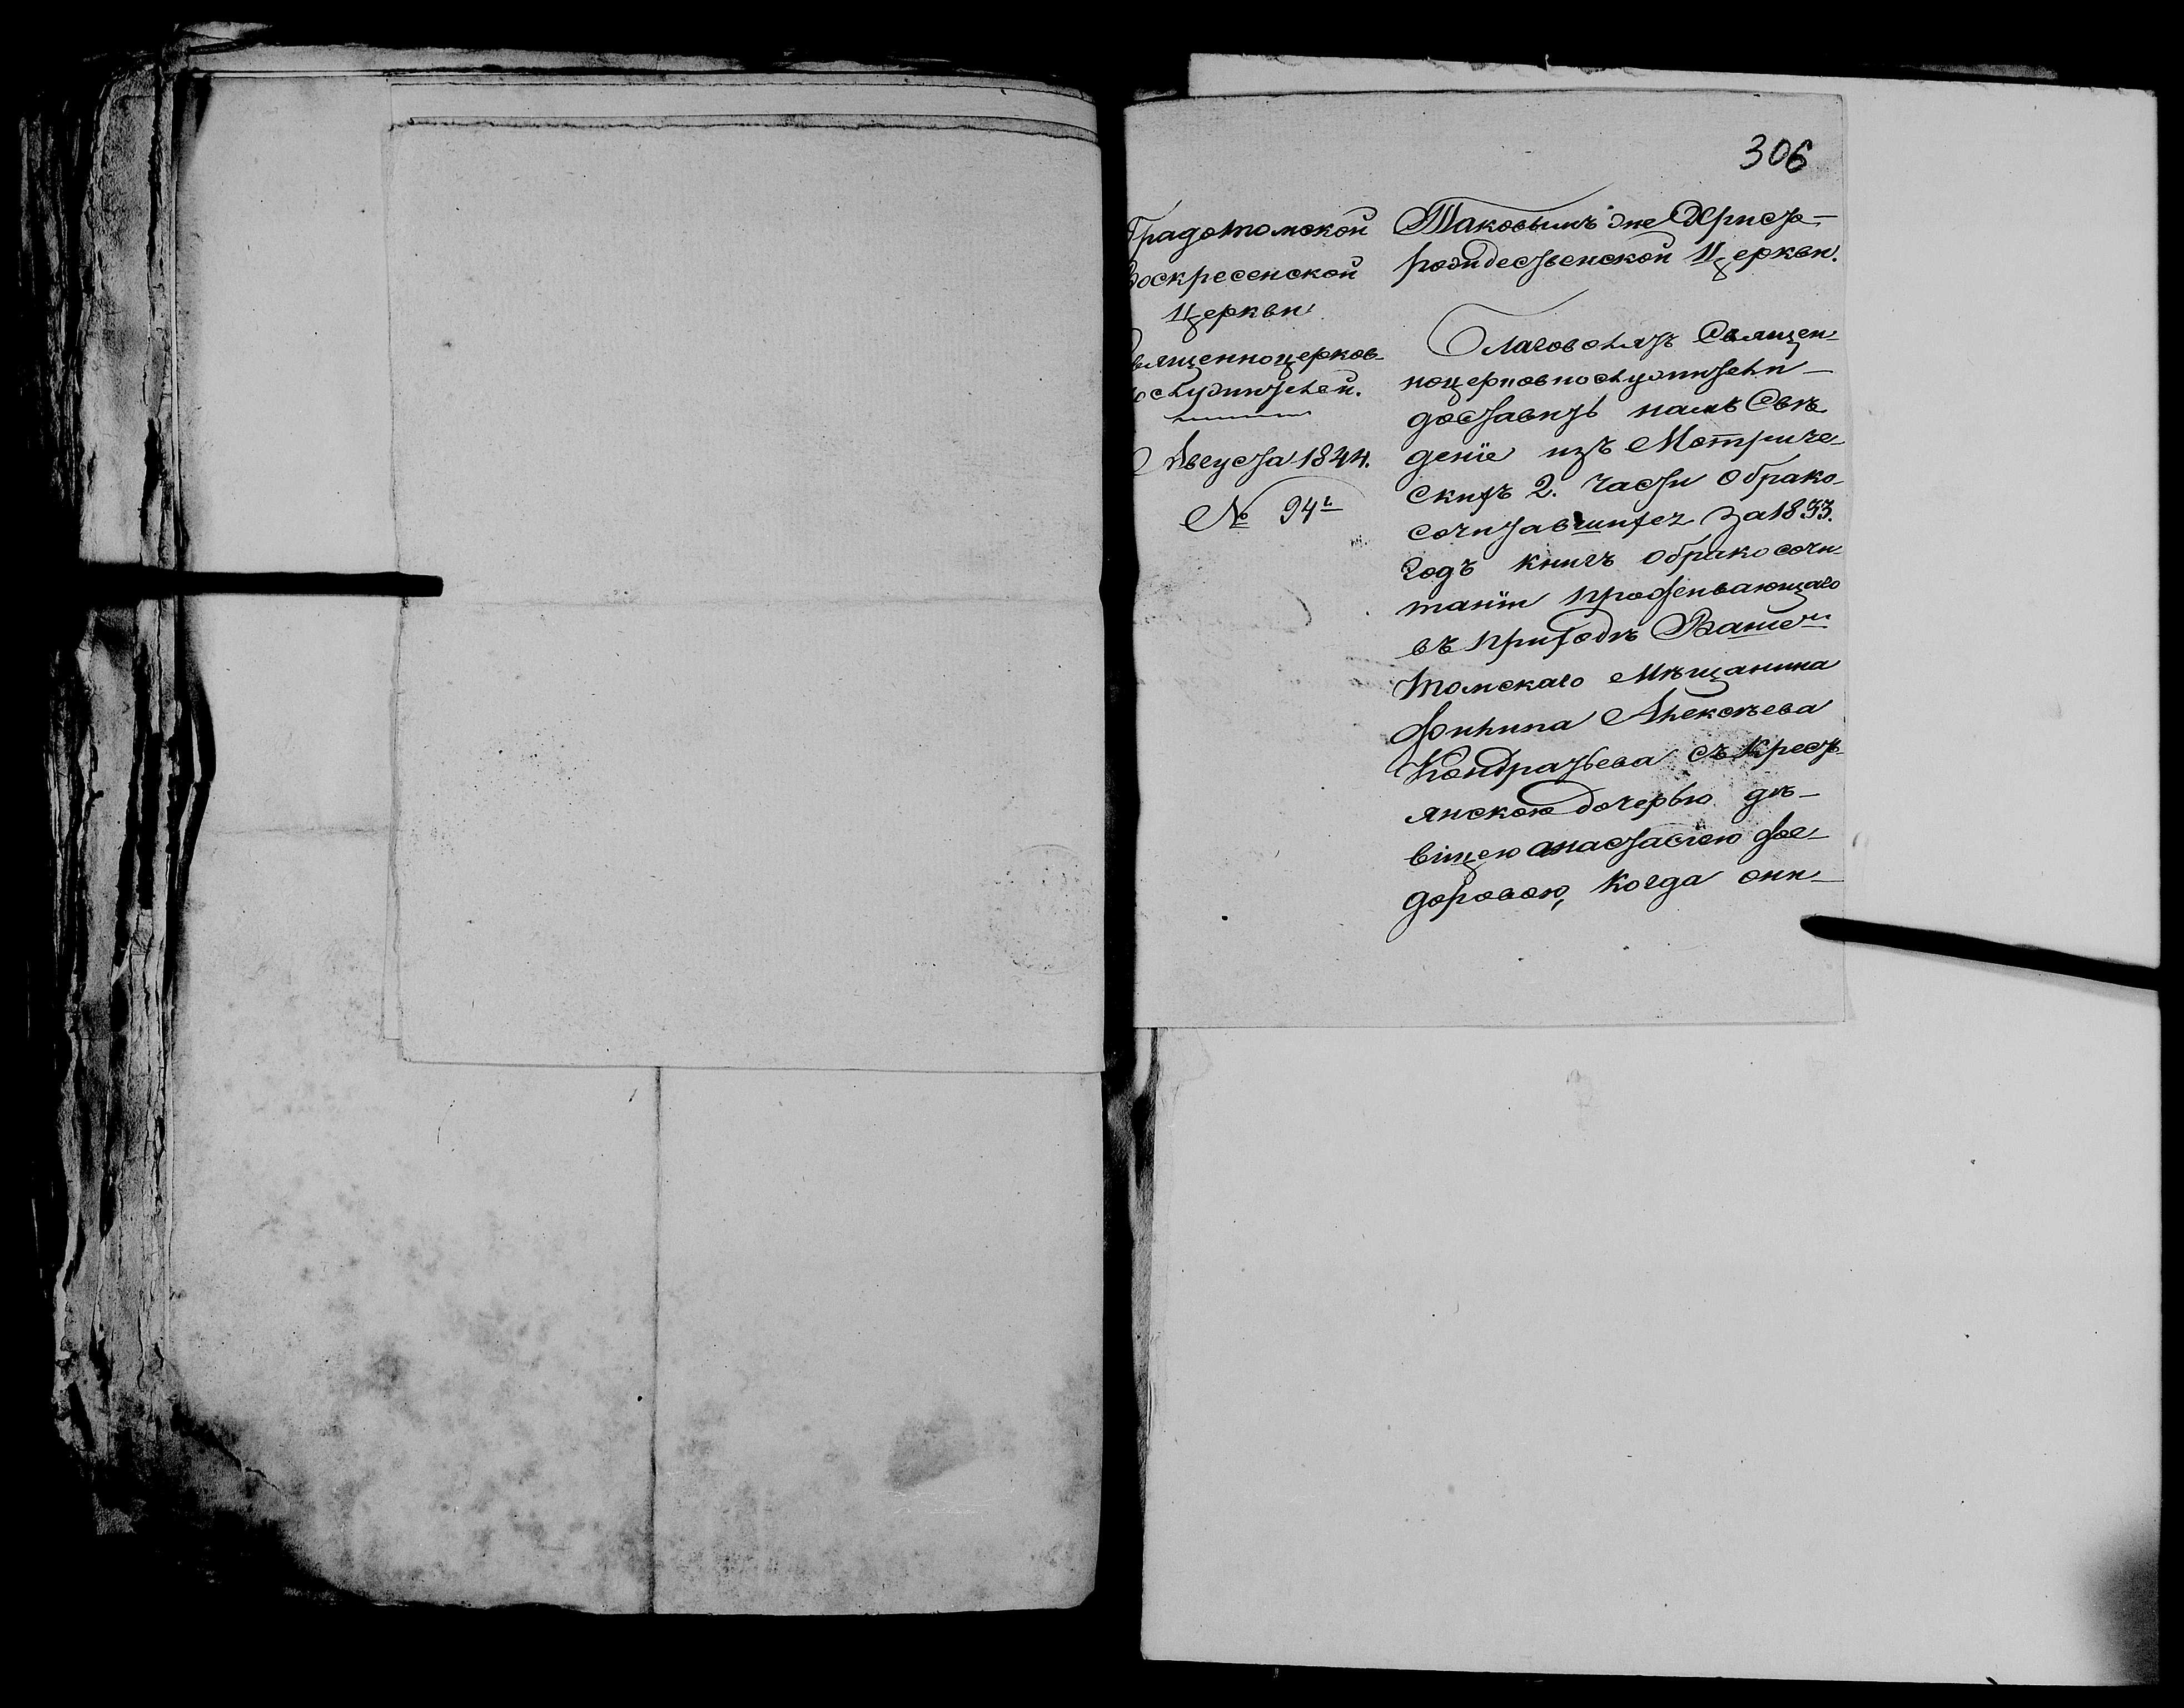 306
Градотомской
Воскресенской
Церкви
Священноцерков-
нослужителей.
Августа 1844.
№ 94
Таковымъ же Христо-
рождественской Церкви.
Благоволятъ Священ-
ноцерковнослужители
доставить намъ Свѣ
деніе изъ Метриче-
скихъ 2. части о брако-
сочитавшихся за 1833.
годъ книгъ о бракосочи
таніи проживающаго
въ приходѣ Вашемъ
томскаго мѣщанина
Филипа Алексѣева
Кондратьева съ крест-
янскою дочерью дѣ-
віцею анастасіею Фео-
доровою, когда они